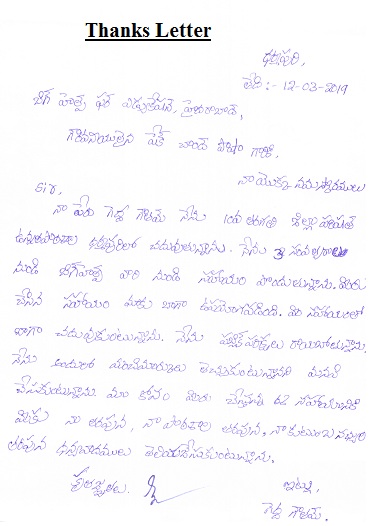 Thanks Letter
ధర్మపురి,
తేది :- 12-03-2019
బిగ్ హెల్ప్ ఫర్ ఎడ్యుకేషన్, హైదరాబాద్,
గౌరవనీయులైన షేక్ చాంద్ పాషా గారికి,
నా యొక్క నమస్కారములు
Sir,
నా పేరు గెడ్డ గౌతమ్ నేను 10వ తరగతి జిల్లా పరిషత్
ఉన్నతపాఠశాల ధర్మపురిలో చదువుతున్నాను. నేను 3 సంవత్సరాల
నుండి బిగ్‌హెల్ప్ వారి నుండి సహాయం పొందుతున్నాను. మీరు
చేసిన సహాయం మాకు బాగా ఉపయోగపడింది. మీ సహాయంతో
బాగా చదువుకుంటున్నాను. నేను పబ్లిక్ పరీక్షలు రాయబోతున్నాను.
నేను అందులో మంచిమార్కులు తెచ్చుకుంటున్నానని మనవి
చేసుకుంటున్నాను. మా కోసం మీరు చేస్తున్న ఈ సహాయానికి
మీకు నా తరపున, నా పాఠశాల తరపున, నా కుటుంబసభ్యుల
తరపున ధన్యవాదములు తెలియజేసుకుంటున్నాను.
కృతజ్ఞతలు. ఇట్లు,
గెడ్డ గౌతమ్.